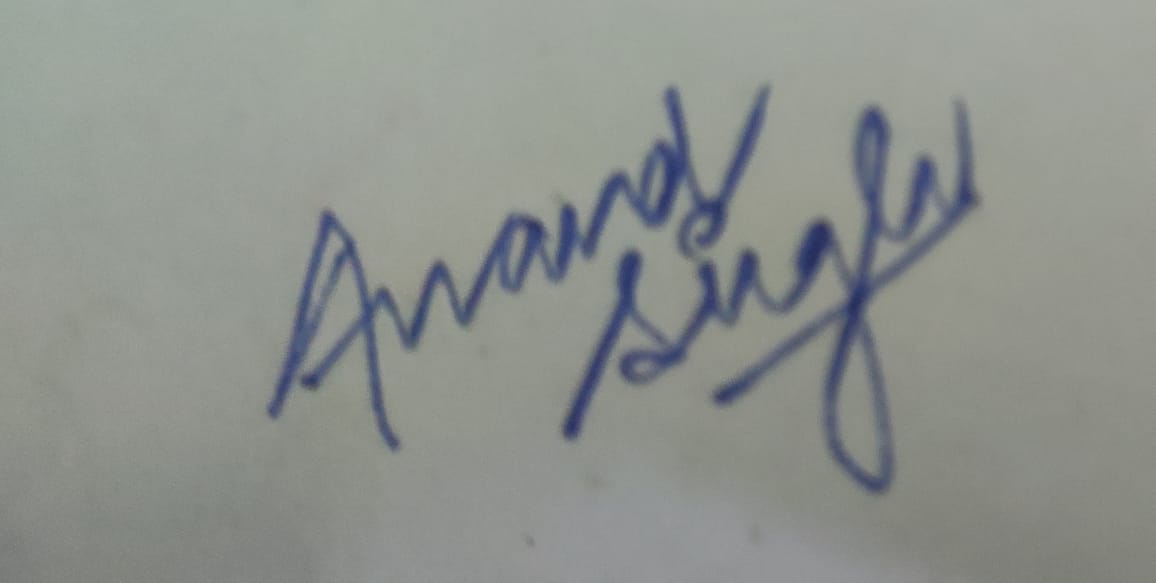 Anand
Singh